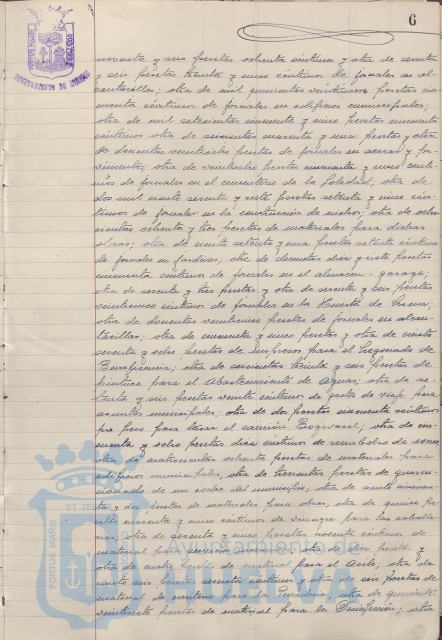 6
noventa y una pesetas ochenta céntimos y otra de setenta
y seis pesetas treinta y cinco céntimos de jornales en al-
cantarillas; otra de mil quinientas veinticinco pesetas cin-
cuenta céntimos de jornales en edificios municipales;
otra de mil setecientas cincuenta y cinco pesetas cincuenta
céntimos otra de seiscientas noventa y una pesetas y otra
de doscientas veintiocho pesetas de jornales en aceras y pa-
vimentos; otra de veintiocho pesetas cincuenta y cinco cénti-
mos de jornales en el cementerio de la Soledad; otra de
dos mil ciento sesenta y siete pesetas setenta y cinco cén-
timos de jornales en la construcción de nichos; otra de ocho-
cientas ochenta y tres pesetas de materiales para dichas
obras; otra de ciento setenta y una pesetas setenta céntimos
de jornales en jardines; otra de doscientas diez y siete pesetas
cincuenta céntimos de jornales en el almacén-garage;
otra de sesenta y tres pesetas y otra de sesenta y seis pesetas
veinticinco céntimos de jornales en la Huerta de Mena;
otra de doscientas veinticinco pesetas de jornales en alcan-
tarillas; otra de cincuenta y cinco pesetas y otra de ciento
sesenta y ocho pesetas de impresos para el Negociado de
Beneficencia; otra de seiscientas treinta y seis pesetas de
pintura para el Abastecimiento de Aguas; otra de se-
tenta y seis pesetas veinte céntimos de gastos de viaje para
asuntos municipales; otra de dos pesetas cincuenta céntimos
por peso para tasar el camión
cuenta y ocho pesetas diez céntimos de reembolsos de
otra de cuatrocientas ochenta pesetas de materiales para
edificios municipales, otra de trescientas pesetas de
del municipio, otra de ciento cincuen-
ta y dos pesetas de materiales para obras, otra de quince pe-
setas noventa y cinco céntimos de vinagre para las caballe-
rías; otra de sesenta y cinco pesetas noventa céntimos de
material para otra de diez pesetas y
otra de cuatro pesetas de material para el Asilo, otra de
ciento seis pesetas sesenta céntimos y otra de seis pesetas de
material de escritorio para la otra de quinientas
veintisiete pesetas de material para la Desinfección; otra
PORTUS MARIS
Ayuntamiento de